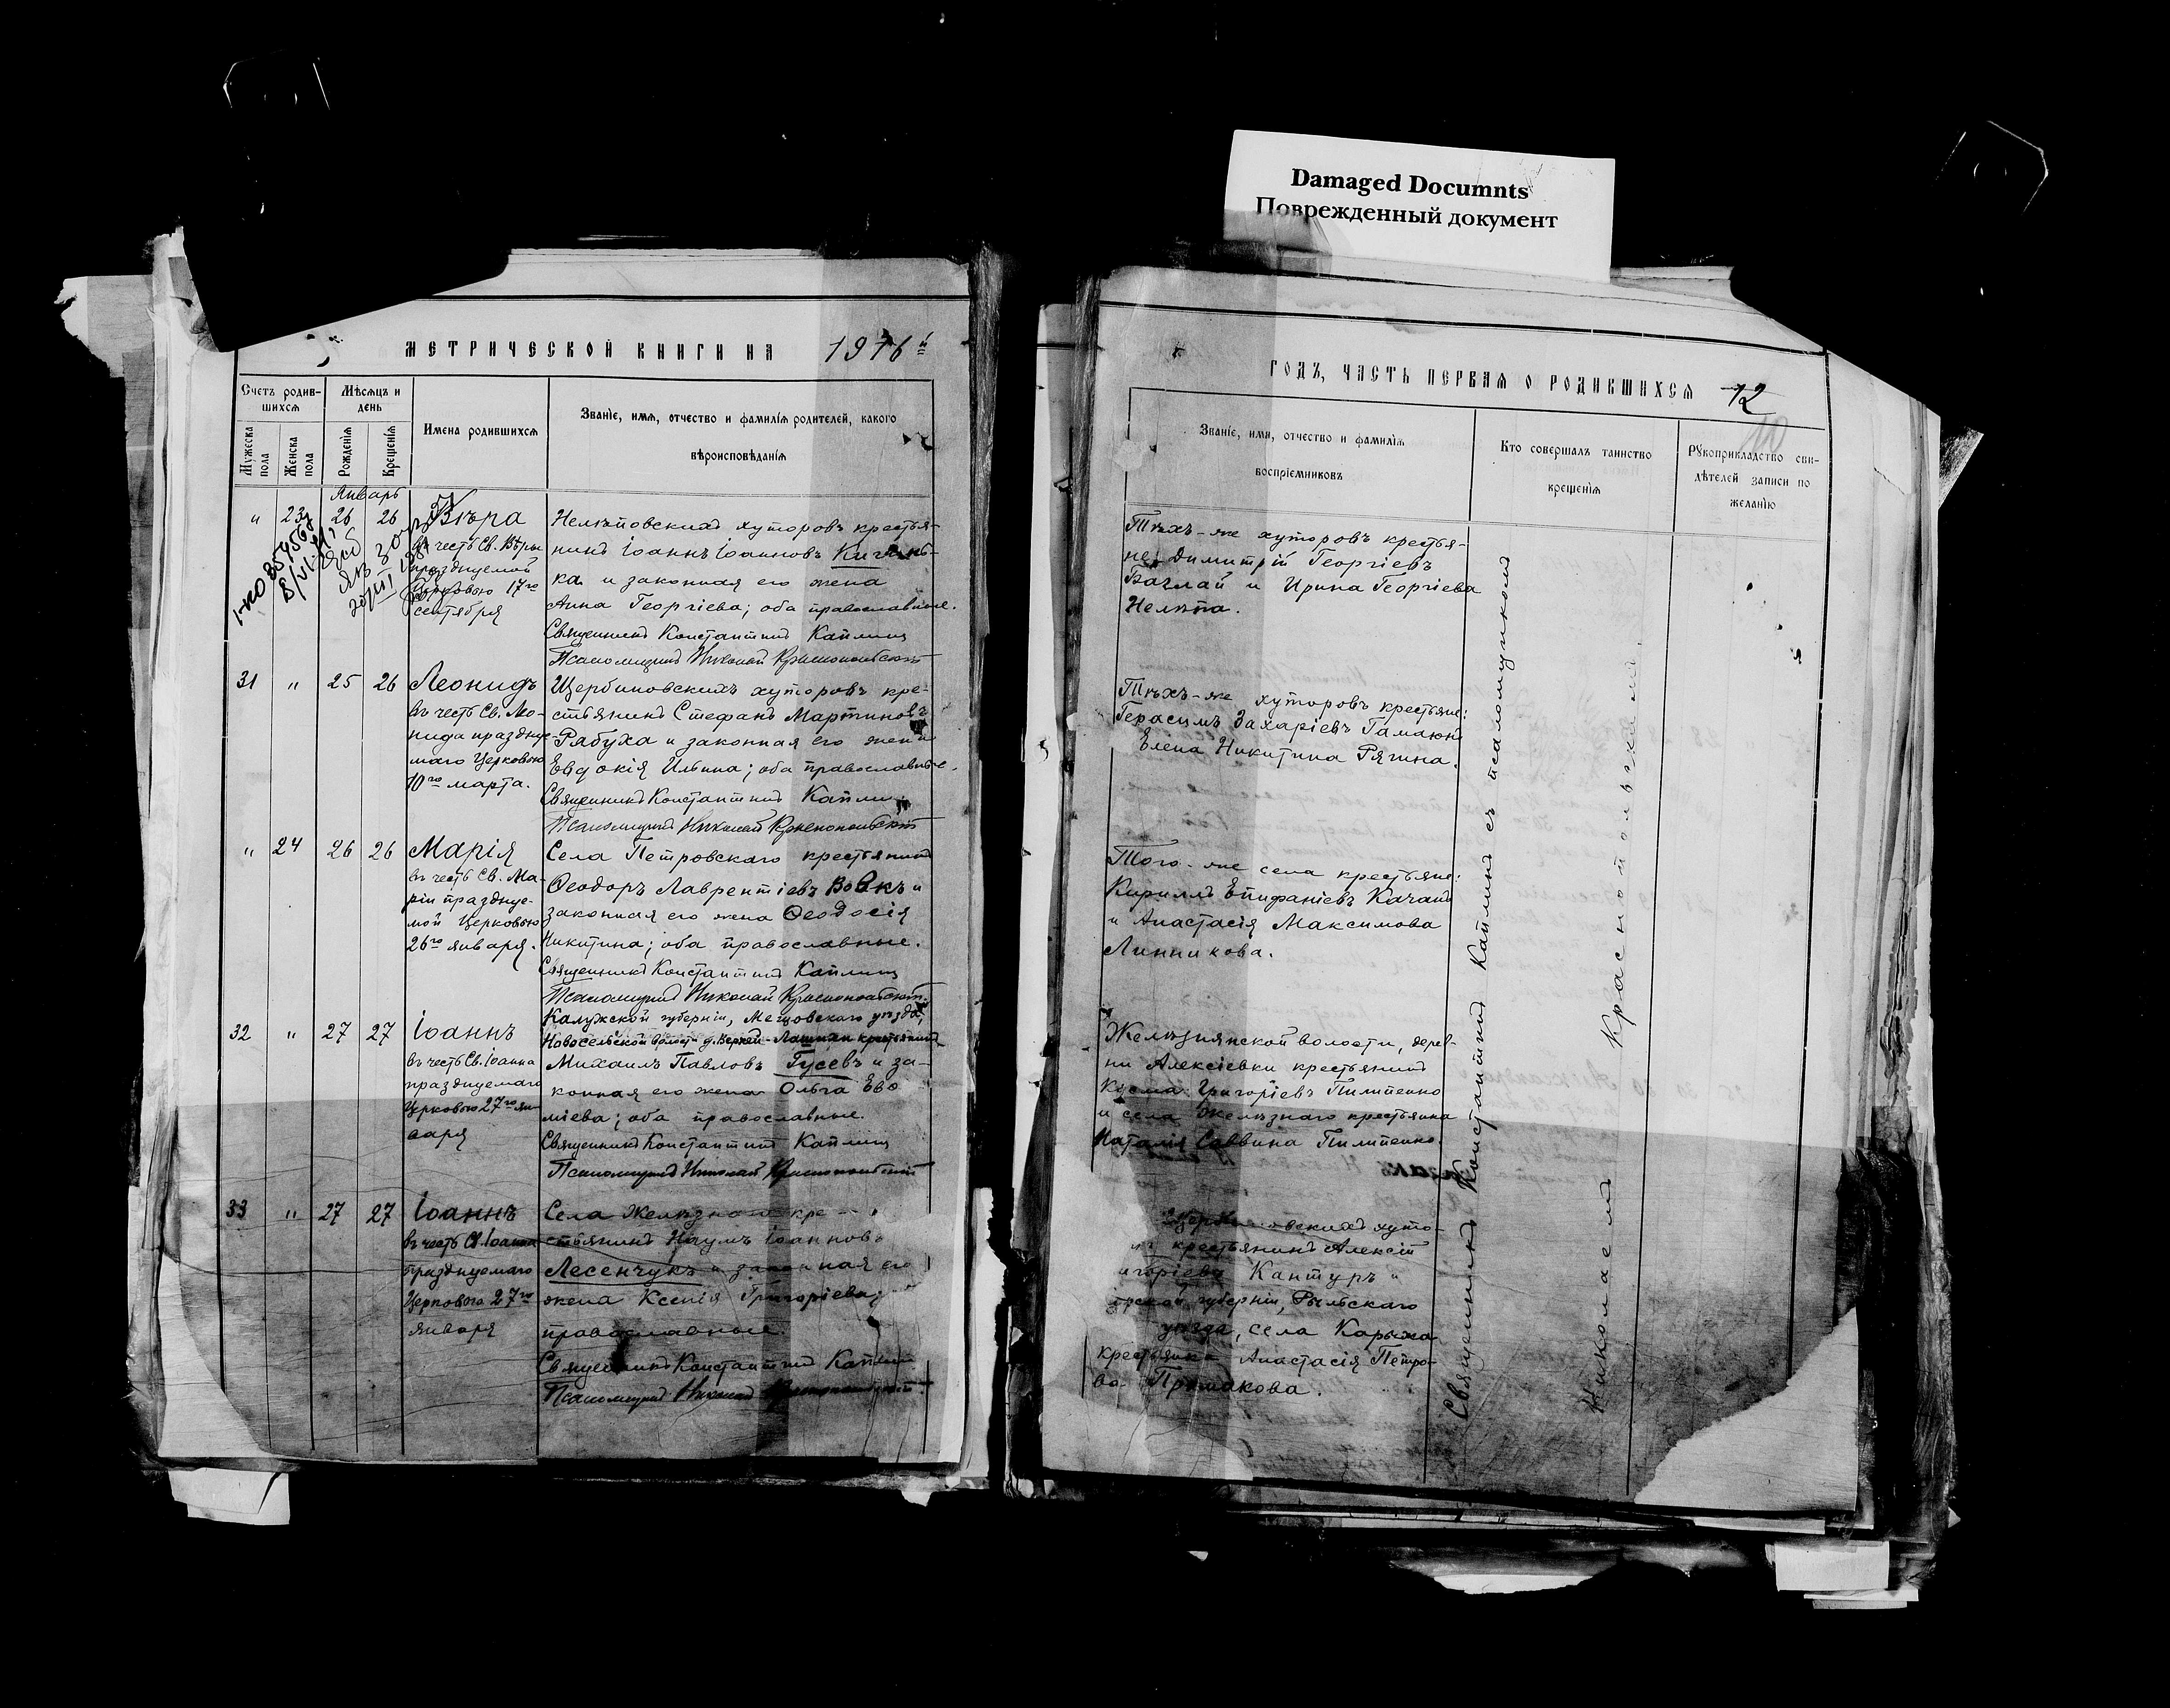 Damaged Documnts
Поврежденный документ
МЕТРИЧЕСКОЙ КНИГИ НА 1916 й
Счетъ родив-
шихся
Мѣсяцъ и
день
Имена родившихся
Званіе, имя, отчество и фамилія родителей, какого
вѣроисповѣданія
Мужеска пола
Женска пола
Рожденія
Крещенія
Январь
" 23 26 26 Вѣра
въ честь Св. Вѣры
празднуемой
Церковью 17го
сентября
Нелѣповскихъ хуторовъ крестья-
нинъ Іоаннъ Іоанновъ
ка и законная его жена
Анна Георгіева; оба православные.
Священникъ Константинъ Каплинъ
Псаломщикъ Николай Краснопольскій
31 " 25 26 Леонидъ
въ честь Св. Лео-
нида празднуе-
маго Церковью
10го марта.
Щербиновскихъ хуторовъ кре-
стьянинъ Стефанъ Мартиновъ
Рябуха и законная его жена
Евдокія Ильина; оба православные.
Священникъ Константинъ Каплинъ
Псаломщикъ Николай Краснопольскій
" 24 26 26 Марія
въ честь Св. Ма-
ріи празднуе-
мой Церковью
26го января.
Села Петровскаго крестьянинъ
Ѳеодоръ Лаврентіевъ Вовкъ и
законная его жена Ѳеодосія
Никитина; оба православные.
Священникъ Константинъ Каплинъ
Псаломщикъ Николай Краснопольскій
32 " 27 27 Іоаннъ
въ честь Св. Іоанна
празднуемаго
Церковью 27го ян-
варя
Калужской губерніи, Мещовскаго уѣзда,
Новосельской волости д. крестьянинъ
Михаилъ Павловъ Гусевъ и за-
конная его жена Ольга Евѳи-
міева; оба православные.
Священникъ Константинъ Каплинъ
Псаломщикъ Николай Краснопольскій
33 " 27 27 Іоаннъ
въ честь Св. Іоанна
празднуемаго
Церковью 27го
января
Села Желѣзнаго кре-
стьянинъ Наумъ Іоанновъ
Лесенчукъ и законная его
жена Ксенія Григоріева;
православные.
Священникъ Константинъ Каплинъ
Псаломщикъ Николай Краснопольскій
ГОДЪ, ЧАСТЬ ПЕРВАЯ О РОДИВШИХСЯ 12
10
Званіе, имя, отчество и фамилія
воспріемниковъ
Кто совершалъ таинство
крещенія
Рукоприкладство сви-
дѣтелей записи по
желанію
Тѣхъ-же хуторовъ крестья-
не: Димитрій Георгіевъ
Баглай и Ирина Георгіева
Нелѣпа.
Тѣхъ-же хуторовъ крестьяне:
Герасимъ Захаріевъ Гамаюнъ
Елена Никитина Рягина.
Того-же села крестьяне:
Кириллъ Епифаніевъ Качанъ
и Анастасія Максимова
Линникова.
Желѣзнянской волости, дерев-
ни Алексіевки крестьянинъ
Косма Григоріевъ Пилипенко
и села Желѣзнаго крестьянка
Наталія Саввина Пилипенко.
хуто-
крестьянинъ Алексій
Кантуръ и
губерніи, Рыльскаго
уѣзда, села Корыжа
крестьянка Анастасія Петро-
ва
Священникъ Константинъ Каплинъ съ псаломщикомъ
Николаемъ Краснопольскимъ.